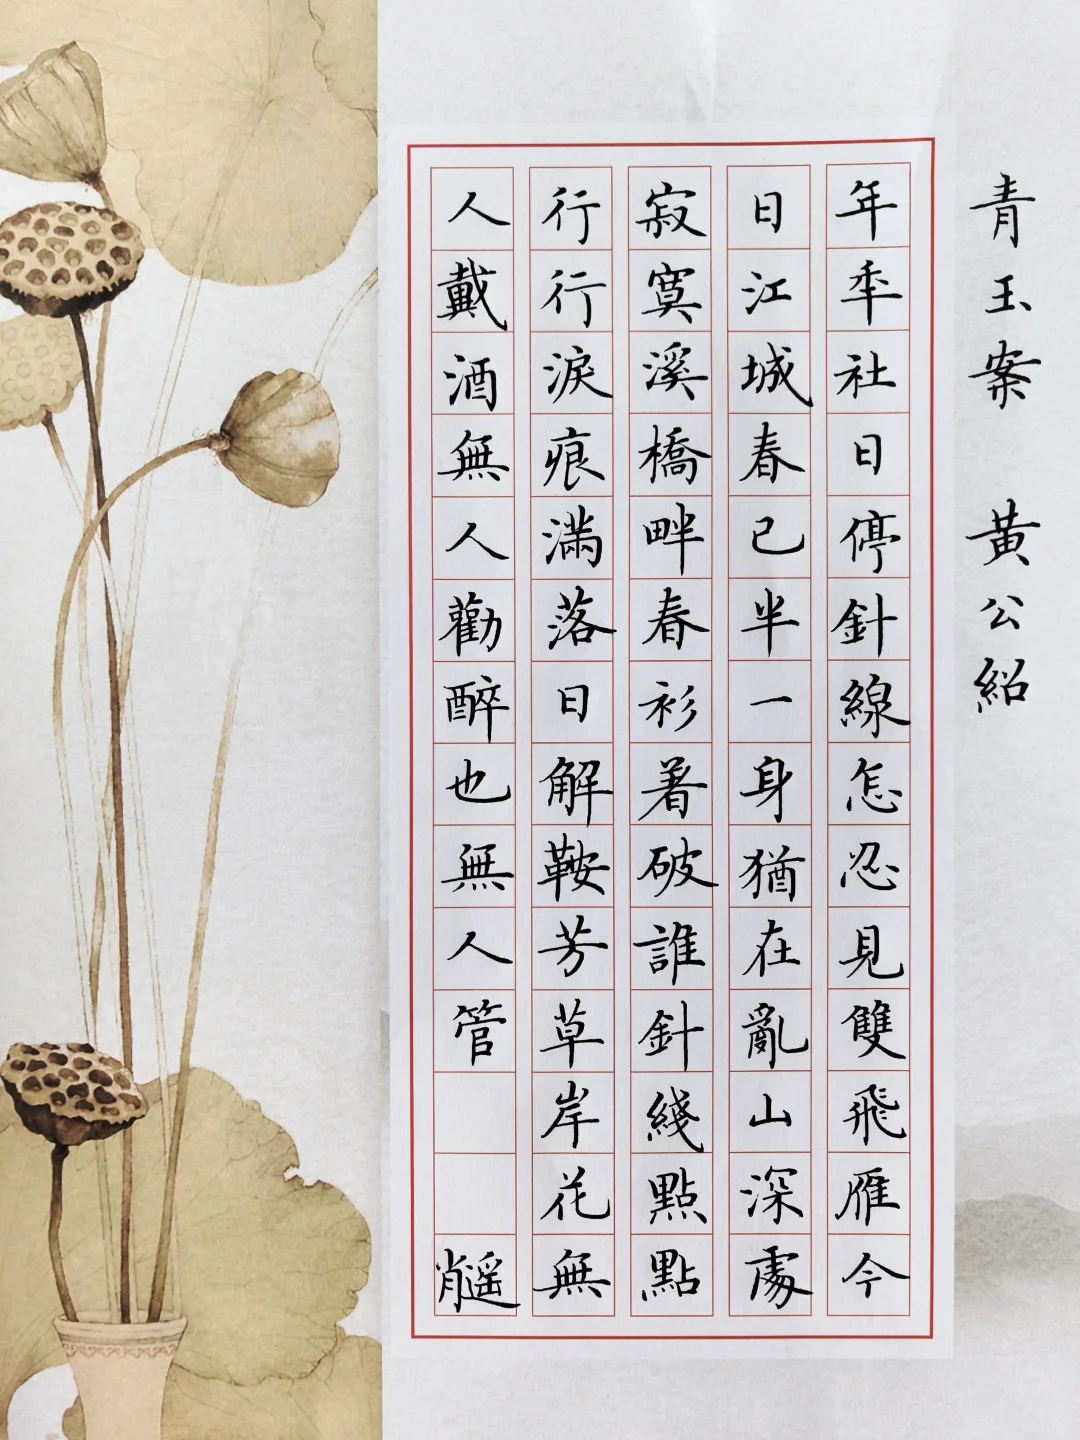 青玉案 黃公紹
年年社日停針線怎忍見雙飛雁今
日江城春已半一身猶在亂山深處
寂寞溪橋畔春衫着破誰針綫點點
行行淚痕滿落日解鞍芳草岸花無
人戴酒無人勸醉也無人管